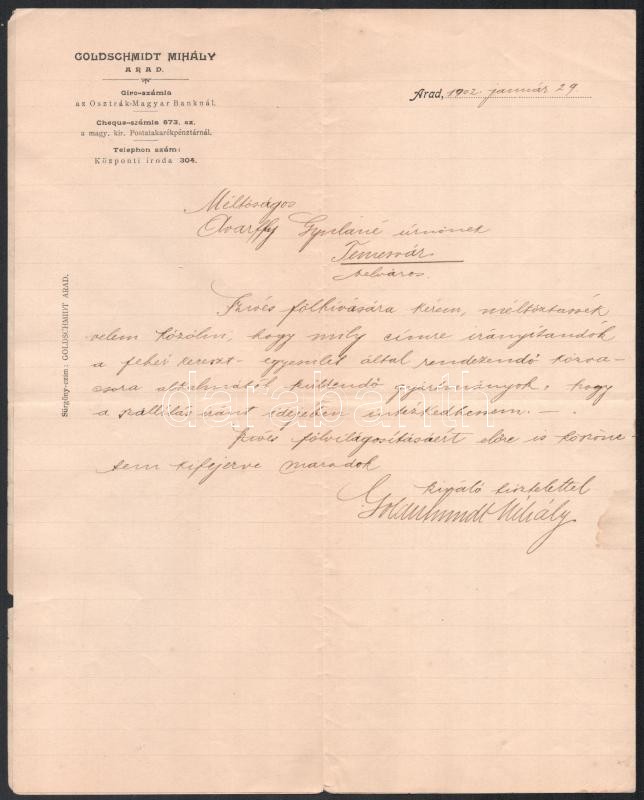 GOLDSCHMIDT MIHÁLY
ARAD.
Giro-számla
az Osztrák-Magyar Banknál.
Cheque-számla 673. sz.
a magy. kir. Postatakarékpénztárnál.
Telephon szám:
Központi iroda 304.
Arad, 1902. január 29
Sürgöny-czím: GOLDSCHMIDT ARAD.
Méltóságos
Avarffy Gyuláné úrnőnek
Temesvár
belváros.
Szives fölhivására kérem, méltóztassék
velem közölni, hogy mily címre irányitandók
a fehér kereszt-egyemlet által rendezendő tözva-
csora alkalmából küldendő gyártmányok, hogy
a szállitás iránt idejében intézkedhessem. —.
Szives fölvilágositásáért előre is köszöne-
tem kifejezve maradok
kiváló tisztelettel
Goldschmidt Mihály
darabanth